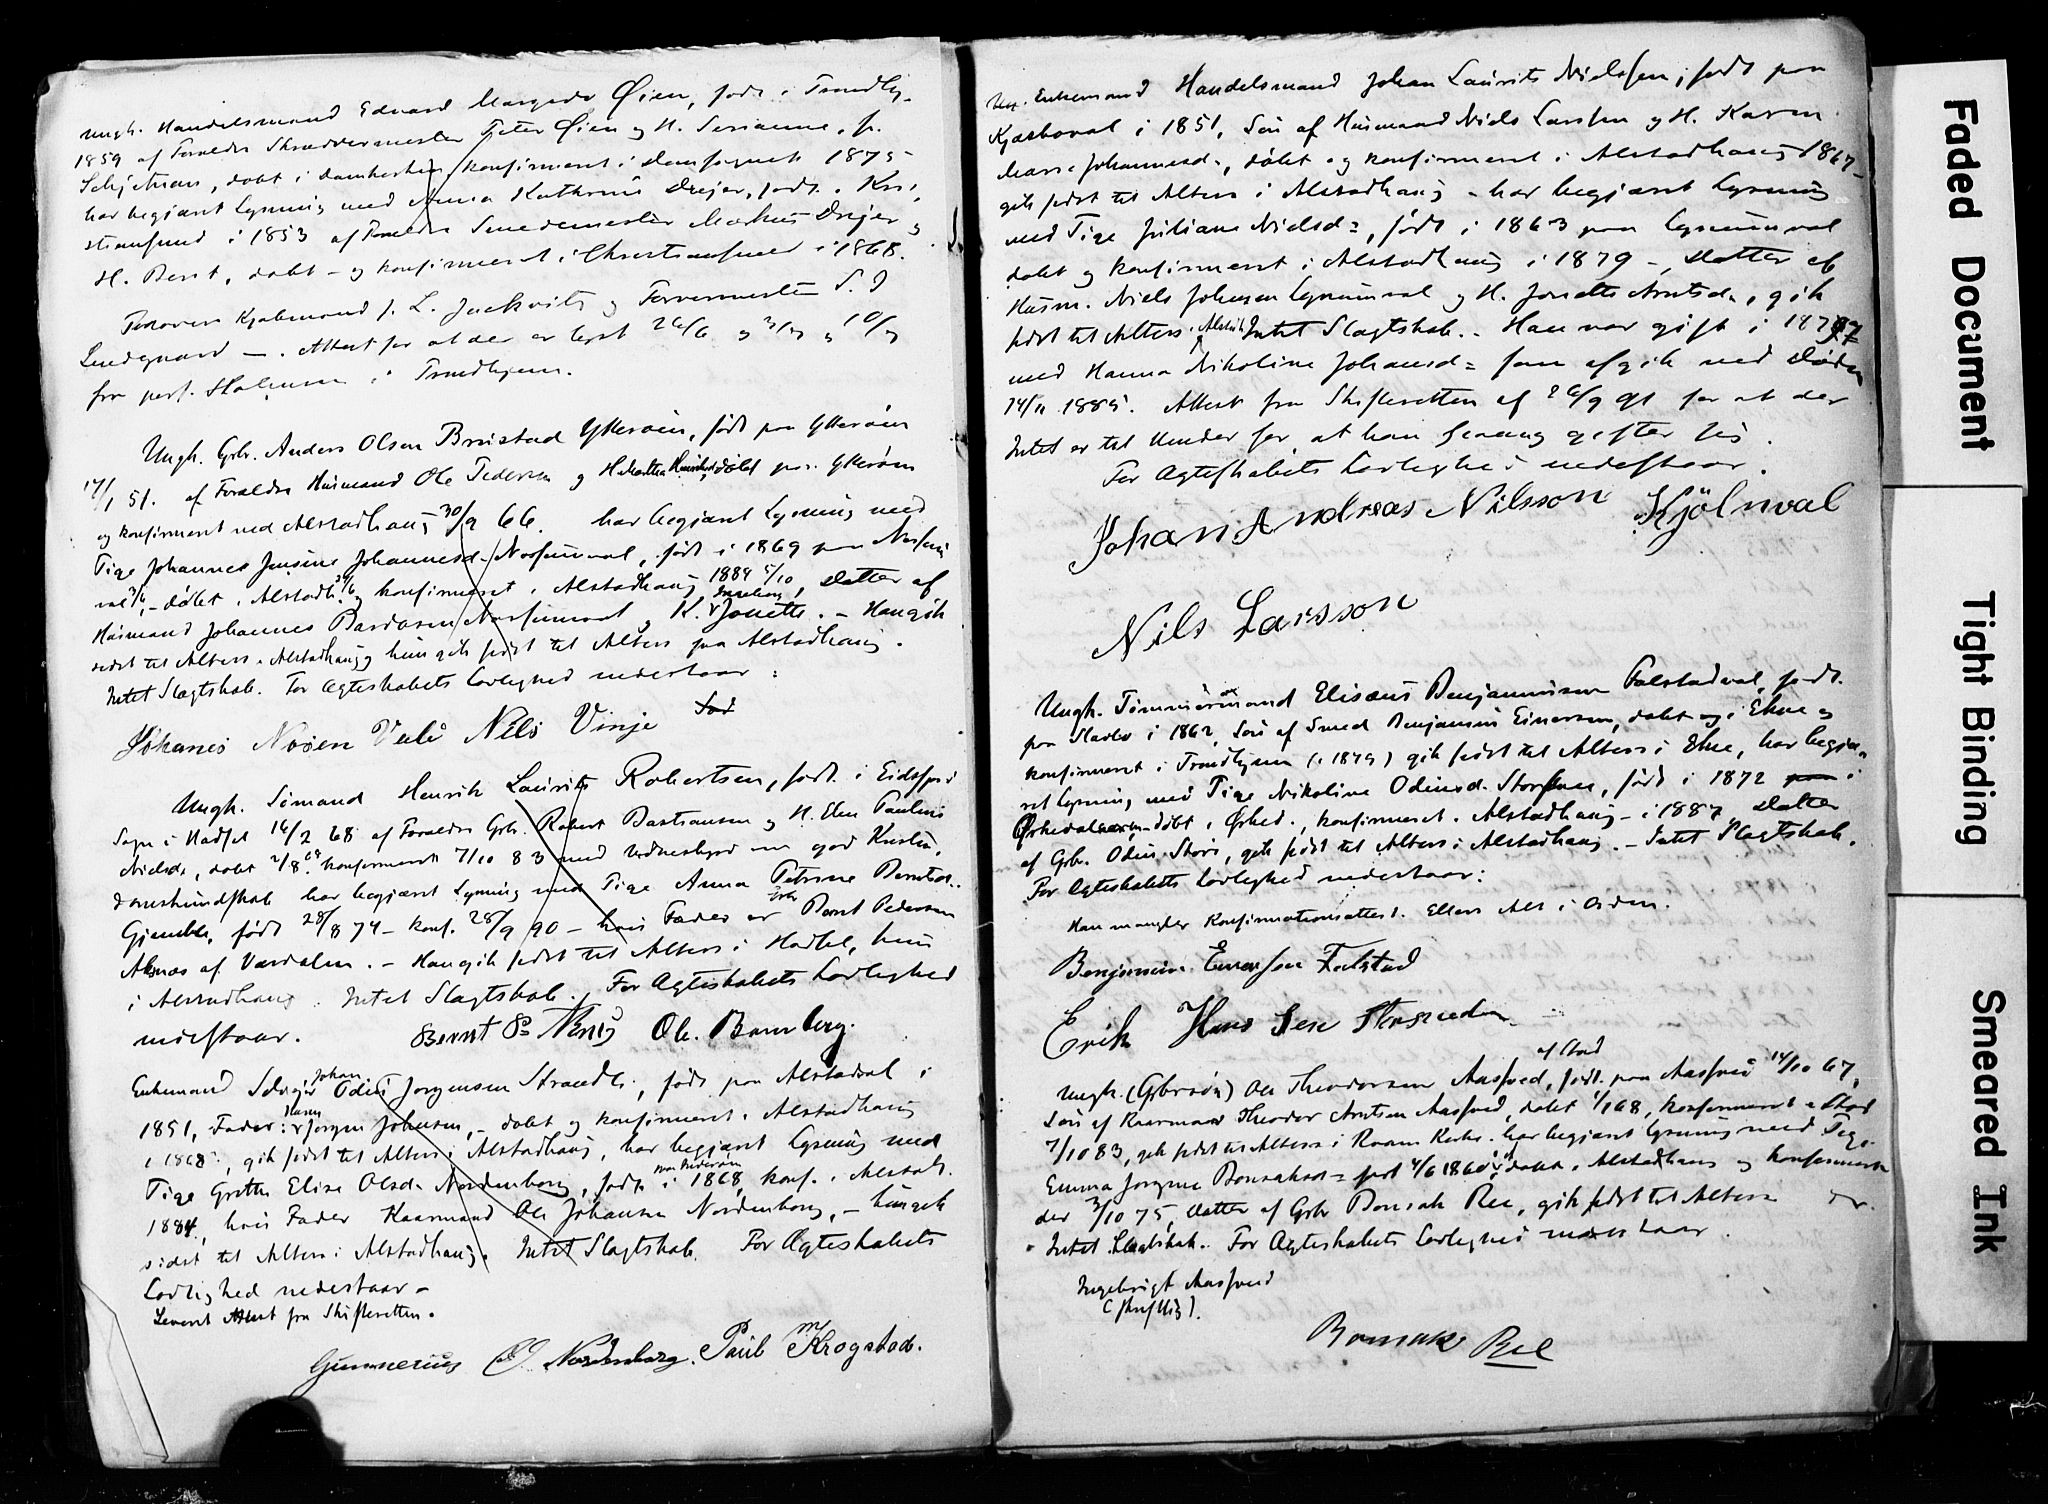 Ungk. Handelsmand Edvard Øien, født i Trondhj.
1859 af Forældre Skræddermester Peter Øien og H. Serianne, f.
Schjetman, døbt i Domkirken, konfirmeret i Domsognet 1875
har begjæret Lysning med Anna Kathrine Drejer, født i Kri-
stiansund i 1853 af Forældre Smedemester Markus Drejer og
H. Berit, døbt og konfirmeret i Christiansund i 1868.
Forlovere Kjøbmand J. L. Jackwitz og Farvermester S. J
Lundgaard —. Attest for at der er lyst 26/6 og 3/7 og 10/7
fra i Trondhjem.
Ungk. Gbr. Anders Olsen Brustad Ytterøen, født paa Ytterøen
17/1 51. af Forældre Husmand Ole Pedersen og H. Martha døbt paa Ytterøen
og konfirmeret ved Alstadhaug 30/9 66. har begjæret Lysning med
Pige Johannes Jensine Johannesd. født i 1869 paa
val 3/6, døbt i Alstadh. og konfirmeret i Alstadhaug 1884 5/10, Datter af
Husmand Johannes Bardosen og K. Ingeborg Jonette. – Han gik
sidst til Alters i Alstadhaug og hun gik sidst til Alters paa Alstadhaug.
Intet Slægtskab. For Ægteskabets Lovlighed nedestaar:
Johanes Nils Vinje
Ungk. Sømand Henrik Laurits Robertsen, født i Eidsfjord
Sogn i Hadsel 16/2 68 af Forældre Gbr. Robert Bastiansen og H. Elen Pauline
Nielsd., døbt 2/8 68 konfirmeret 7/10 83 med Vidnesbyrd om god Kristen-
domskundskab har begjæret Lysning med Pige Anna Petrine Berntsd.
født 28/8 74 – konf. 28/9 90 – hvis Fader er Gbr. Bernt Pedersen
af Værdalen. – Han gik sidst til Alters i Hadsel, hun
i Alstadhaug. Intet Slægtskab. For Ægteskabets Lovlighed
nedestaar. Bernt P. Ole Bamberg.
Enkemand Johan Odin Jørgensen født paa Alstadval i
1851, Fader: Jørgen Johnsen, – døbt og konfirmeret i Alstadhaug
i 1868, gik sidst til Alters i Alstadhaug, har begjæret Lysning med
Pige Grethe Elise Olsd. Nordenborg, født paa Inderøen i 1868, konf. i Alstah.
1884, hvis Fader Kaarmand Ole Johansen Nordenborg, – hun gik
sidst til Alters i Alstadhaug. Intet Slægtskab. For Ægteskabets
Lovlighed nedestaar –
Leveret Attest fra Skifteretten.
Gunnerius O. Nordenborg. Paul M Krogstad.
Enkemand Handelsmand Johan Laurits Nielssen, født paa
i 1851, Søn af Husmand Niels Larssen og H. Karen
Marie Johannesd., døbt og konfirmeret i Alstadhaug 1867 –
gik sidst til Alters i Alstadhaug – har begjæret Lysning
med Pige Juliane Nielsd., født i 1863 paa Lynumval
døbt og konfirmeret i Alstadhaug i 1879 –, Datter af
Husm. Niels Johnsen Lynumval og H. Jonette Arntsd., gik
sidst til Alters i Alstah. Intet Slægtskab. – Han var gift i 1877
med Hanna Nikoline Johansd. som afgik ved Døden
14/11 1885. Attest fra Skifteretten af 26/9 91 for at der
Intet er til Hinder for at han paany gifter sig.
For Ægteskabets Lovlighed nedestaar.
Johan Andreas Nilsson Kjölnval
Nils Larsson
Ungk. Tømmermand Elisæus Benjaminsen Falstadval, født
paa i 1862, Søn af Smed Benjamin Einersen, døbt i Ekne og
konfirmeret i Trondhjem (i 1879) gik sidst til Alters i Ekne, har begjæ-
ret Lysning med Pige Nikoline Odinsd. født i 1872 i
døbt i Ørked., konfirmeret i Alstadhaug – i 1887, Datter
af Gbr. Odin gik sidst til Alters i Alstadhaug. – Intet Slægtskab.
For Ægteskabets Lovlighed nedestaar:
Han mangler Konfirmationsattest. Ellers Alt i Orden.
Benjamin Einersen Falstad
Erik
af Stod
Ungk. (Gbrsøn) Ole Theodorsen Aasved, født paa Aasved 14/10 67,
Søn af Kaarmand Theodor Arntsen Aasved, døbt 1/1 68, konfirmeret i Stod
7/10 83, gik sidst til Alters i Kirke. har begjæret Lysning med Pige
Emma Jørgine Bonsaksd. født 4/6 1860, døbt i Alstadhaug og konfirmeret
der 3/10 75, Datter af Gbr Bonsak Ree, gik sidst til Alters der.
Intet Slægtskab. For Ægteskabets Lovlighed nedestaar.
Ingebrigt Aasved
(skriftlig).
Bonsak Ree
Faded Document
Tight Binding
Smeared Ink